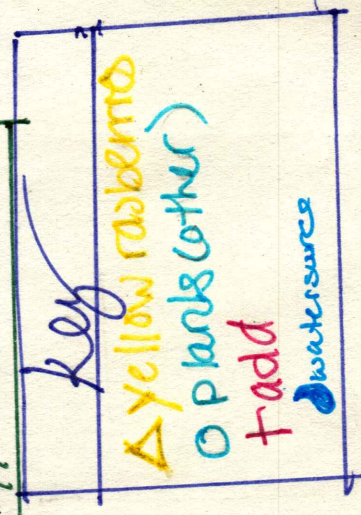 Key
△ yellow rasberries
○ plants (other)
+ add
watersource